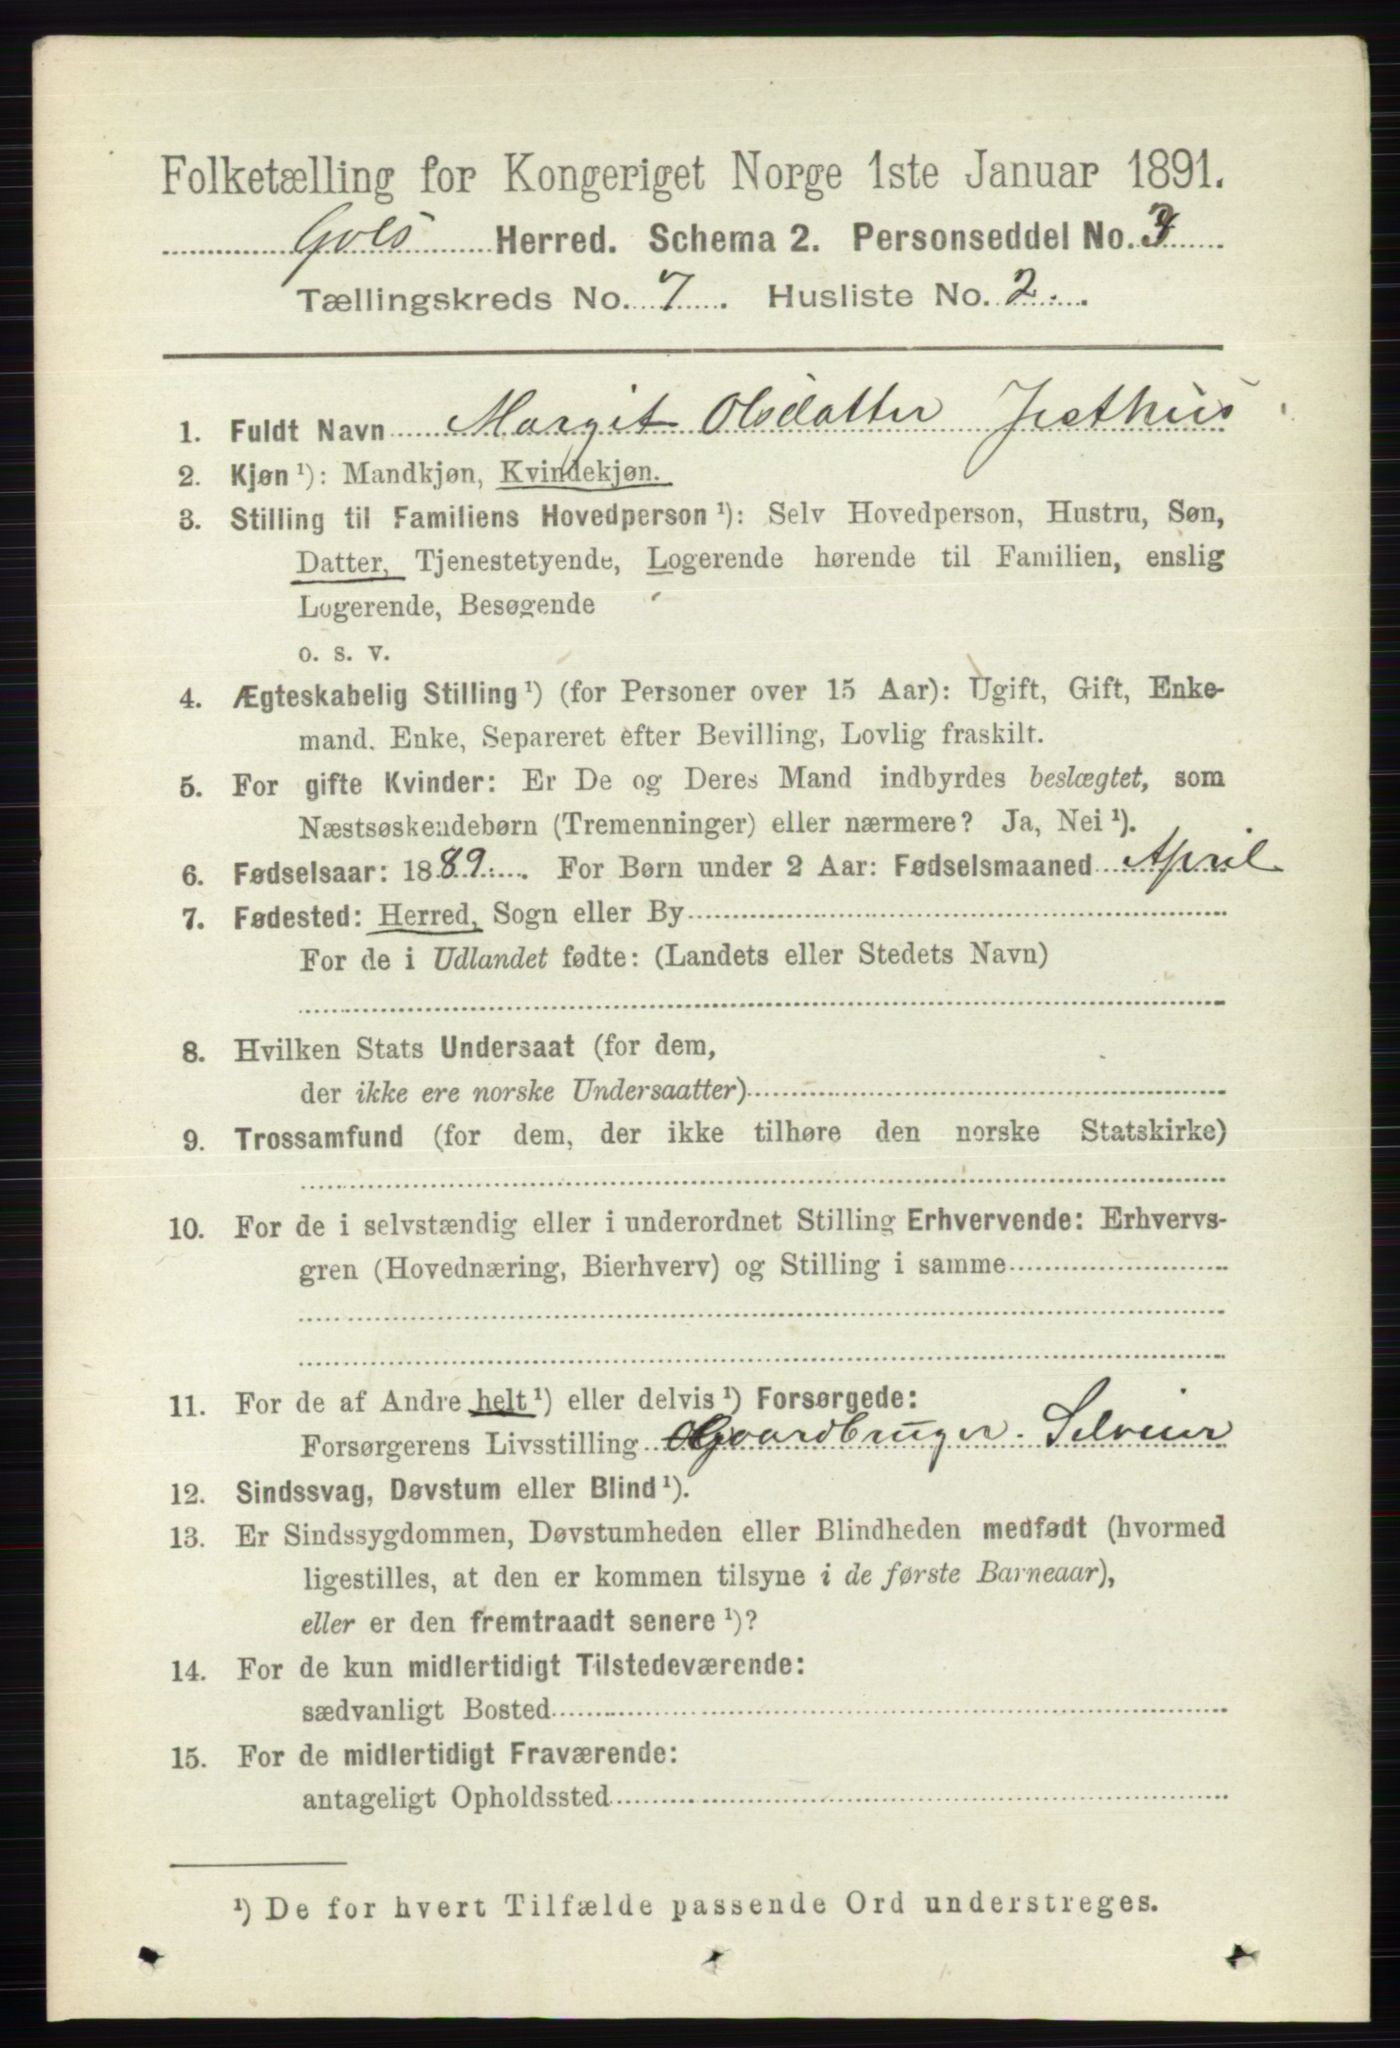 Folketælling for Kongeriget Norge 1ste Januar 1891.
Gols Herred. Schema 2. Personseddel No. 3
Tællingskreds No. 7. Husliste No. 2.
1. Fuldt Navn Margit Olsdatter
2. Kjøn ¹): Mandkjøn, Kvindekjøn.
3. Stilling til Familiens Hovedperson ¹): Selv Hovedperson, Hustru, Søn,
Datter, Tjenestetyende, Logerende hørende til Familien, enslig
Logerende, Besøgende
o. s. v.
4. Ægteskabelig Stilling ¹) (for Personer over 15 Aar): Ugift, Gift, Enke-
mand. Enke, Separeret efter Bevilling, Lovlig fraskilt.
5. For gifte Kvinder: Er De og Deres Mand indbyrdes beslægtet, som
Næstsøskendebørn (Tremenninger) eller nærmere? Ja, Nei ¹).
6. Fødselsaar: 1889. For Børn under 2 Aar: Fødselsmaaned April
7. Fødested: Herred, Sogn eller By
For de i Udlandet fødte: (Landets eller Stedets Navn)
8. Hvilken Stats Undersaat (for dem,
der ikke ere norske Undersaatter)
9. Trossamfund (for dem, der ikke tilhøre den norske Statskirke)
10. For de i selvstændig eller i underordnet Stilling Erhvervende: Erhvervs-
gren (Hovednæring, Bierhverv) og Stilling i samme
11. For de af Andre helt ¹) eller delvis ¹) Forsørgede:
Forsørgerens Livsstilling Gaardbruger. Selveier
12. Sindssvag, Døvstum eller Blind ¹).
13. Er Sindssygdommen, Døvstumheden eller Blindheden medfødt (hvormed
ligestilles, at den er kommen tilsyne i de første Barneaar),
eller er den fremtraadt senere ¹)?
14. For de kun midlertidigt Tilstedeværende:
sædvanligt Bosted
15. For de midlertidigt Fraværende:
antageligt Opholdssted
¹) De for hvert Tilfælde passende Ord understreges.